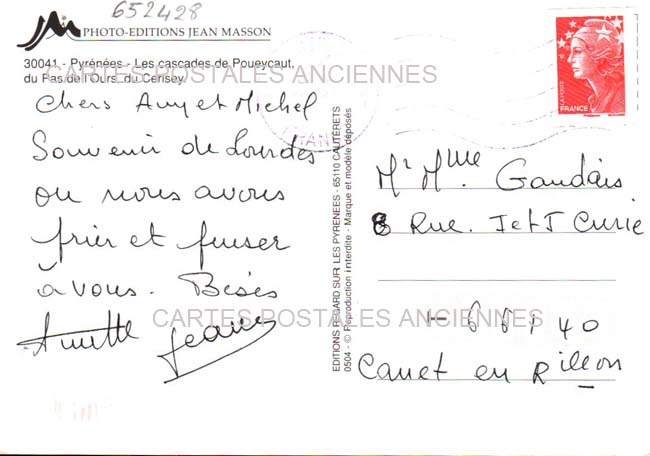 652428
PHOTO-EDITIONS JEAN MASSON
30041 - Pyrénées - Les cascades de Poueycaut,
du Pas de l'Ours, du Cerisey.
CARTES POSTALES ANCIENNES
Chers Amy et Michel
Souvenir de Lourdes
ou nous avons
prier et penser
à vous. Bises
Annette Jeanne
EDITIONS REGARD SUR LES PYRENEES - 65110 CAUTERETS
0504 - © Reproduction interdite - Marque et modèle déposés
LA POSTE
FRANCE
Mr Mme Gaudais
8 Rue. J et J Curie
66140
Canet en Rillon
CARTES POSTALES ANCIENNES